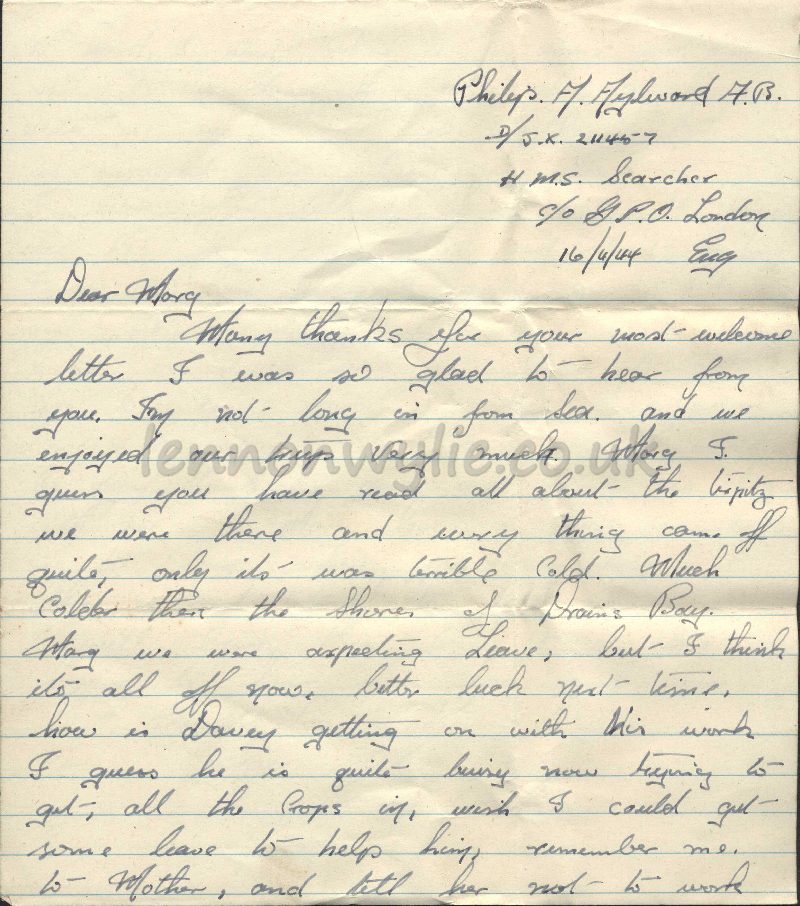 Philip. A. Aylward A.B.
D/J.X. 211457
H.M.S. Searcher
c/o G.P.O. London
16/4/44 Eng
Dear Marg
Many thanks for your most welcome
letter I was so glad to hear from
you. I'm not long in from sea. and we
enjoyed our trip very much. Marg I.
lennonwylie.co.uk
guess you have read all about the Tirpitz
we were there and every thing came off
quite, only its was terrible Cold. Much
Colder then the Shores of Drains Bay.
Marg we were expecting Leave, but I think
its all off now, better luck next time,
how is Davey getting on with his work
I guess he is quite busy now trying to
get, all the Crops in, wish I could get
some leave to help him, remember me.
to Mother, and tell her not to work